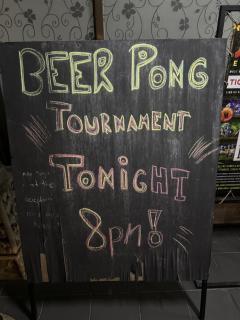 BEER PONG
TOURNAMENT
TONIGHT
8pm!